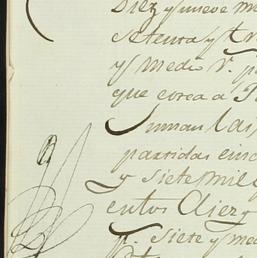 Diez y nueve m
setenta y tr
y medio r. p
que corea a
suman las
partidas cinc
y siete mil q
entos diez y
p. siete y me